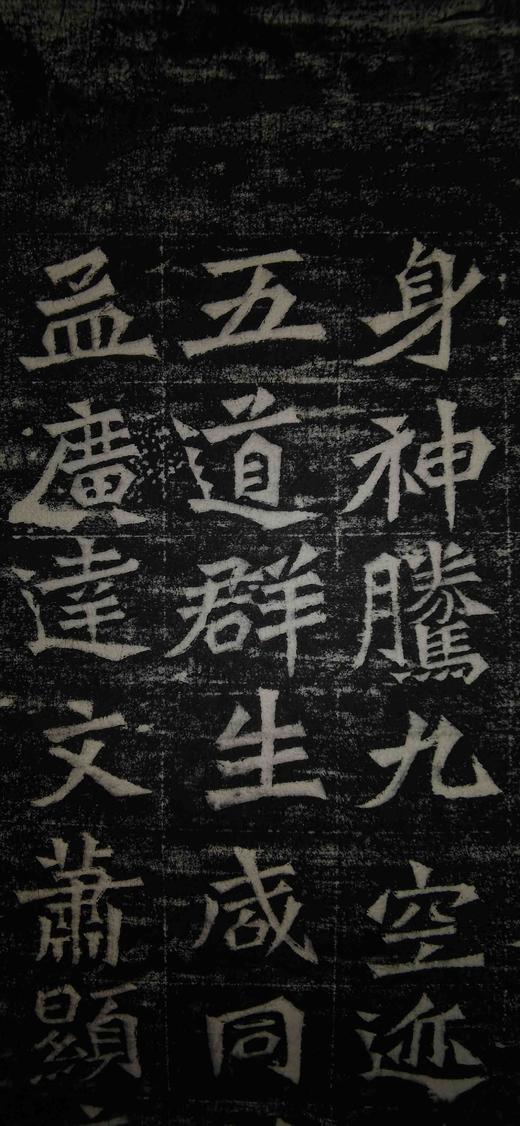 身神騰九空迹
五道群生咸同
孟廣達文蕭顯